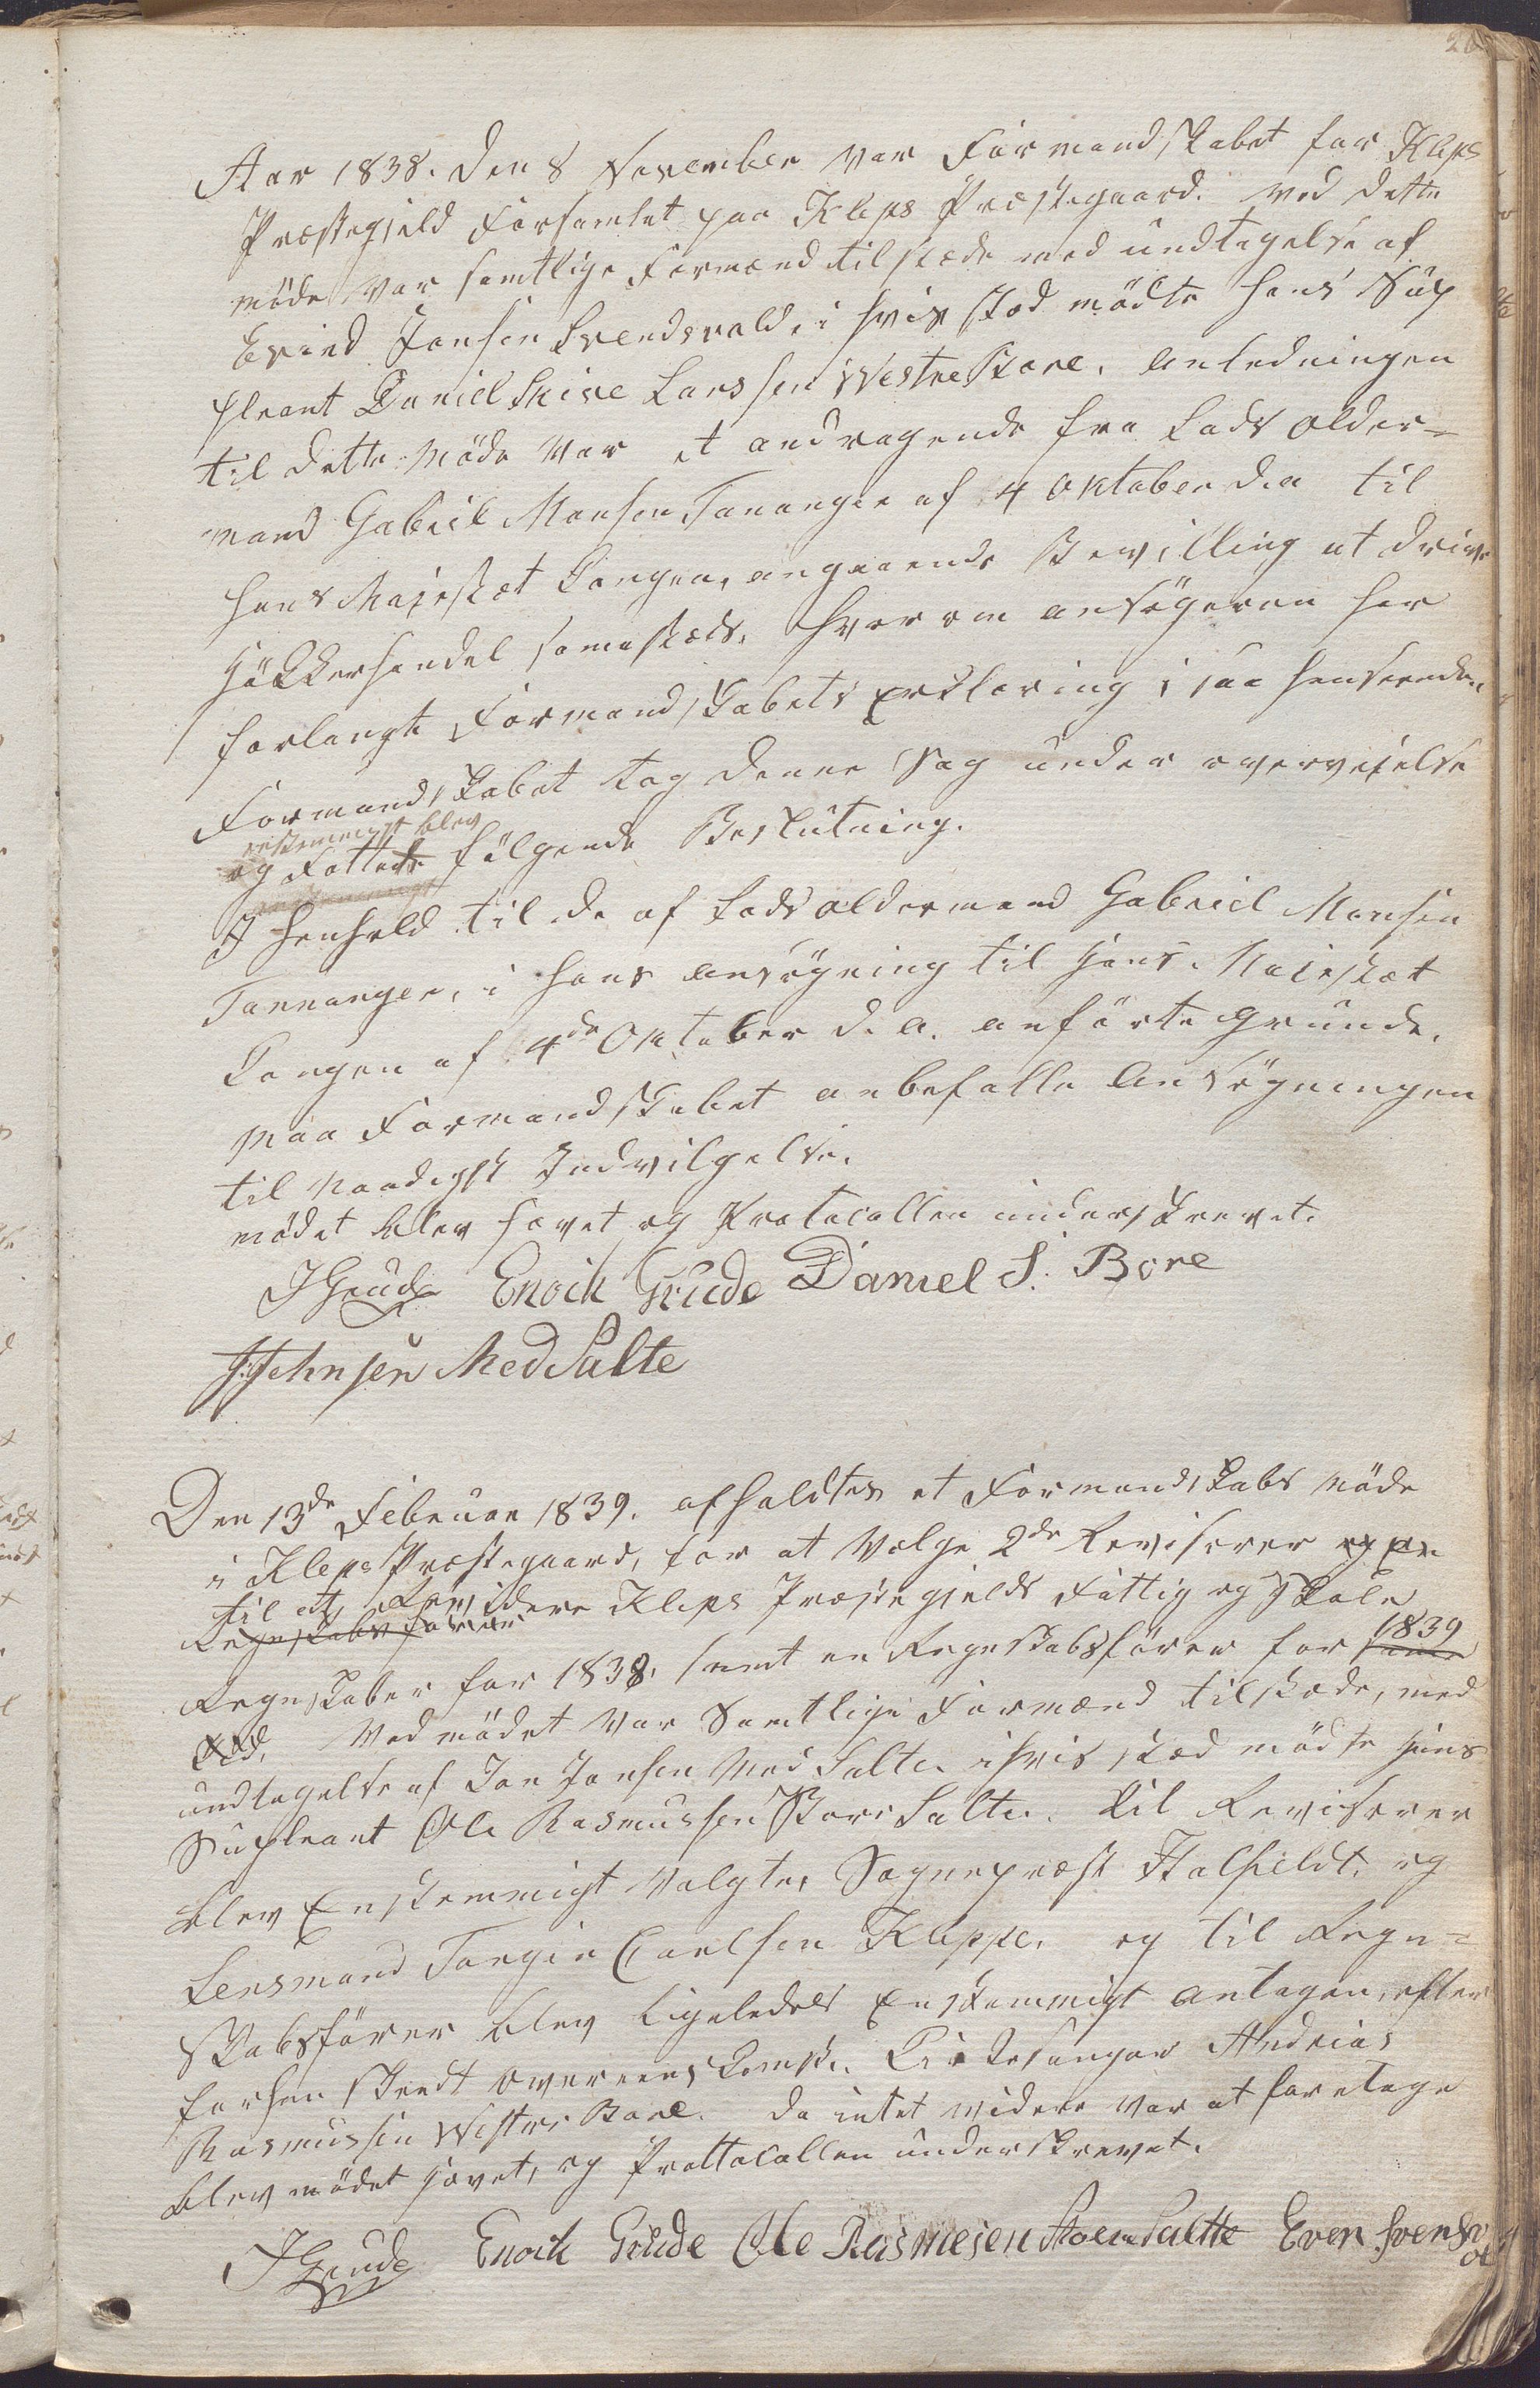 20
Aar 1838. den 8 November var Formandskabet for Kleps
Præstegjeld Forsamlet paa Kleps Præstegaard. Ved dette
møde var samtlige Formænd tilstæde med undtagelse af
Evind Jansen Svendsvold, i hvis stæd mødte hans Sup
pleant Daniel Skive Larssen Westre Bore. Anledningen
til dette Møde var et andragende fra Lods older=
mand Gabriel Monsen Tananger af 4 Oktober d. a til
hans Majestæt Kongen, angaaende Bevilling at drive
Høkkerhandel samestæds, hvorom ansøgeren har
forlangt Formandskabets Erklæring i saa henseende.
Formandskabet tog denne Sag under overveielse
enstemmigt blev
og Fattede følgende Beslutning.
I henhold til de af Lodsoldermand Gabriel Monsen
Tannanger, i hans Ansøgning til Hans Majestæt
Kongen af 4de Oktober d. a. anførte Grunde,
maa Formandskabet anbefalle Ansøgningen
til Naadigst Indvilgelse.
mødet blev hævet og Protocollen underskrevet.
J Grude Enoch Grude Daniel S. Bore
J Johnsen Med Salte
Den 13de Februar 1839. afholdtes et Formandskabs Møde
i Kleps Præstegaard, for at Vælge 2de Revisorer og en
til at Revidere Kleps Præstegjelds Fattig og Skole
Regnskabsfører
Regnskaber for 1838, samt en Regnskabsfører for samme
1839
Ved mødet var Samtlige Formænd tilstæde, med
undtagelse af Jon Jonsen Med Salte i hvis stæd mødte hans
Supleant Ole Rasmussen Store Salte. Til Revisorer
blev Enstemmigt Valgte, Sognepræst Hatfeldt, og
Lensmand Torger Carlsen Kleppe, og til Regn=
skabsfører blev ligeledes Enstemmigt antagen, efter
forhen skeedt overeenskomst, Kirkesanger Andreas
Rasmussen Westre Bore. Da intet videre var at foretage
blev mødet hævet, og Prottocollen underskrevet.
J Grude Enoch Grude Ole Rasmusen Store Saltte Even Svensv
ol